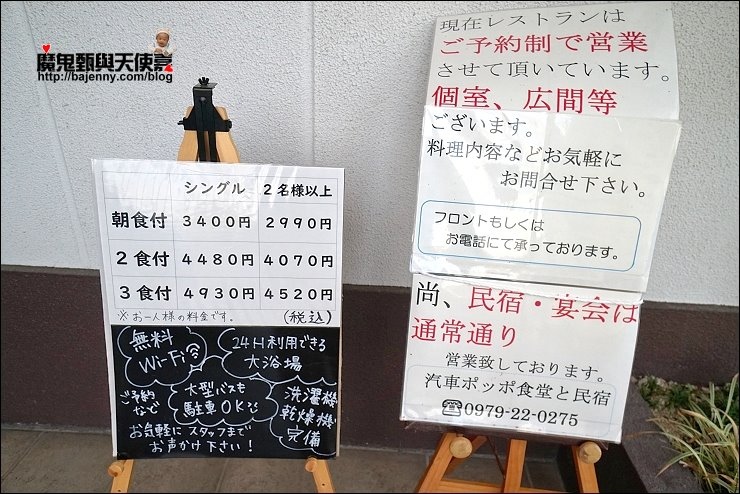 魔鬼甄與天使嘉
http://bajenny.com/blog
シングル 2名様以上
朝食付 3400円 2990円
2食付 4480円 4070円
3食付 4930円 4520円
※お一人様の料金です。 (税込)
無料
Wi-Fi
24H利用できる
大浴場
ご予約
など
大型バスも
駐車OK
洗濯機
乾燥機
完備
お気軽にスタッフまで
お声かけ下さい!
現在レストランは
ご予約制で営業
させて頂いています。
個室、広間等
ございます。
料理内容などお気軽に
お問合せ下さい。
フロントもしくは
お電話にて承っております。
尚、民宿・宴会は
通常通り
営業致しております。
汽車ポッポ食堂と民宿
☎0979-22-0275